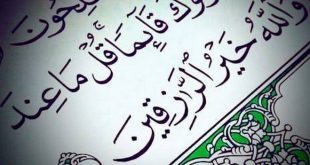 قَآئِمًا قُلْ مَا عِندَ
وَٱللَّهُ خَيْرُ ٱلرَّٰزِقِينَ